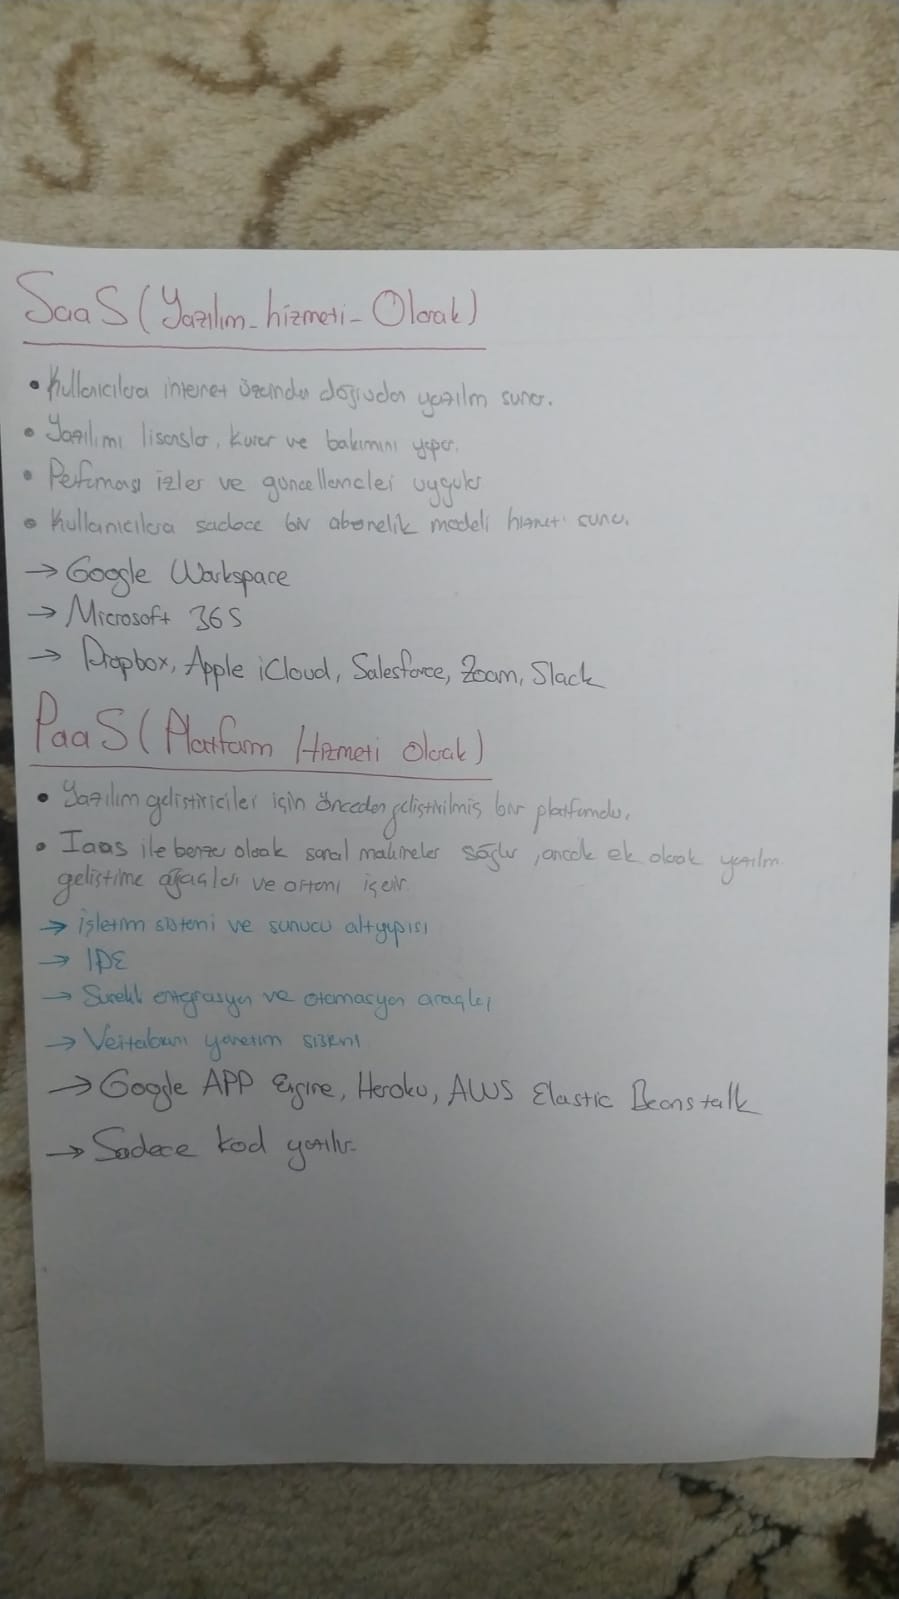 SaaS (Yazılım-hizmeti-Olarak)
• Kullanıcılara internet üzerinden doğrudan yazılım sunar.
• Yazılımı lisanslar, kurar ve bakımını yapar.
• Performası izler ve güncellemeleri uygular
• Kullanıcılara sadece bir abonelik modeli hizmeti sunar.
→ Google Workspace
→ Microsoft 365
→ Dropbox, Apple iCloud, Salesforce, Zoom, Slack
PaaS (Platform Hizmeti Olarak)
• Yazılım geliştiriciler için önceden geliştirilmiş bir platformdur.
• Iaas ile benzer olarak sanal makineler sağlar, ancak ek olarak yazılım
geliştirme araçları ve ortamı içerir.
→ işletim sistemi ve sunucu altyapısı
→ IDE
→ Sürekli entegrasyon ve otomasyon araçları
→ Veritabanı yönetim sistemi
→ Google APP Engine, Heroku, AWS Elastic Beanstalk
→ Sadece kod yazılır.